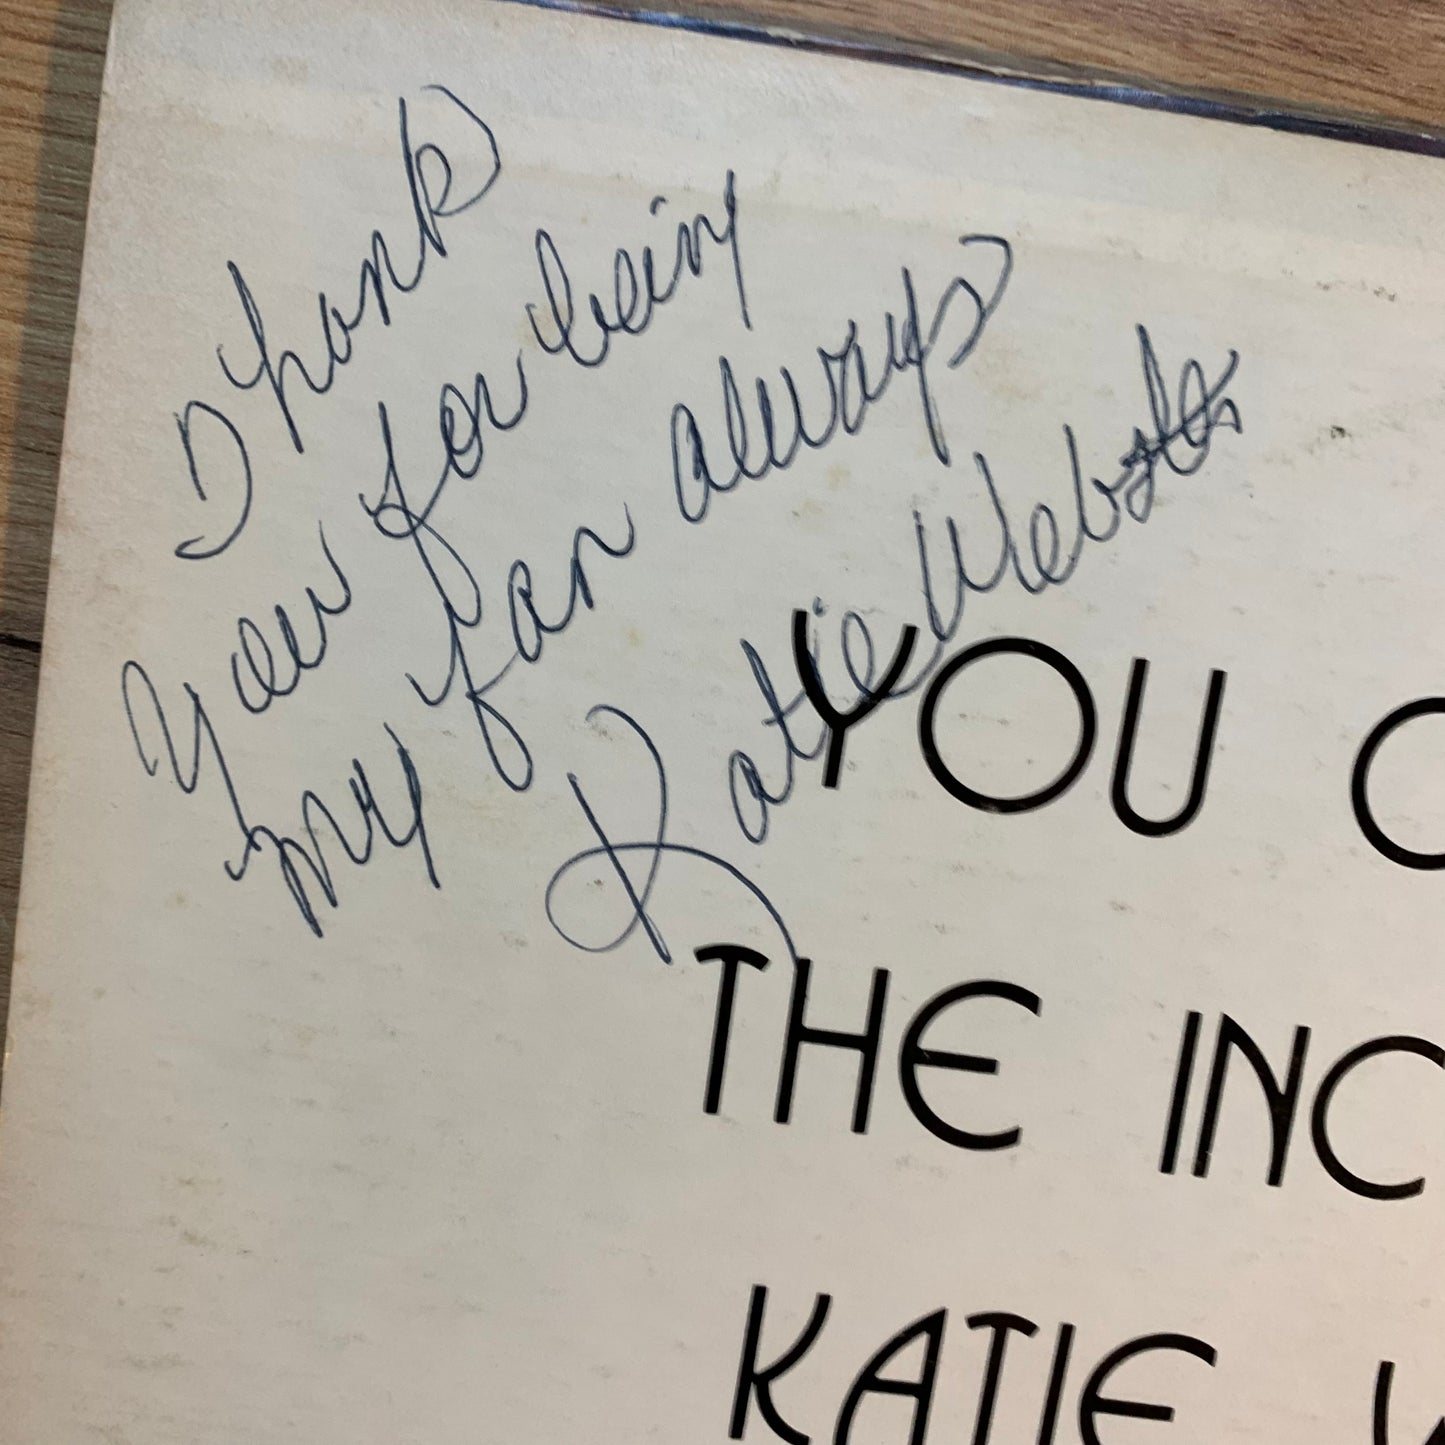 Thank
you for being
my fan always
Katie Webster
YOU C
THE INC
KATIE W